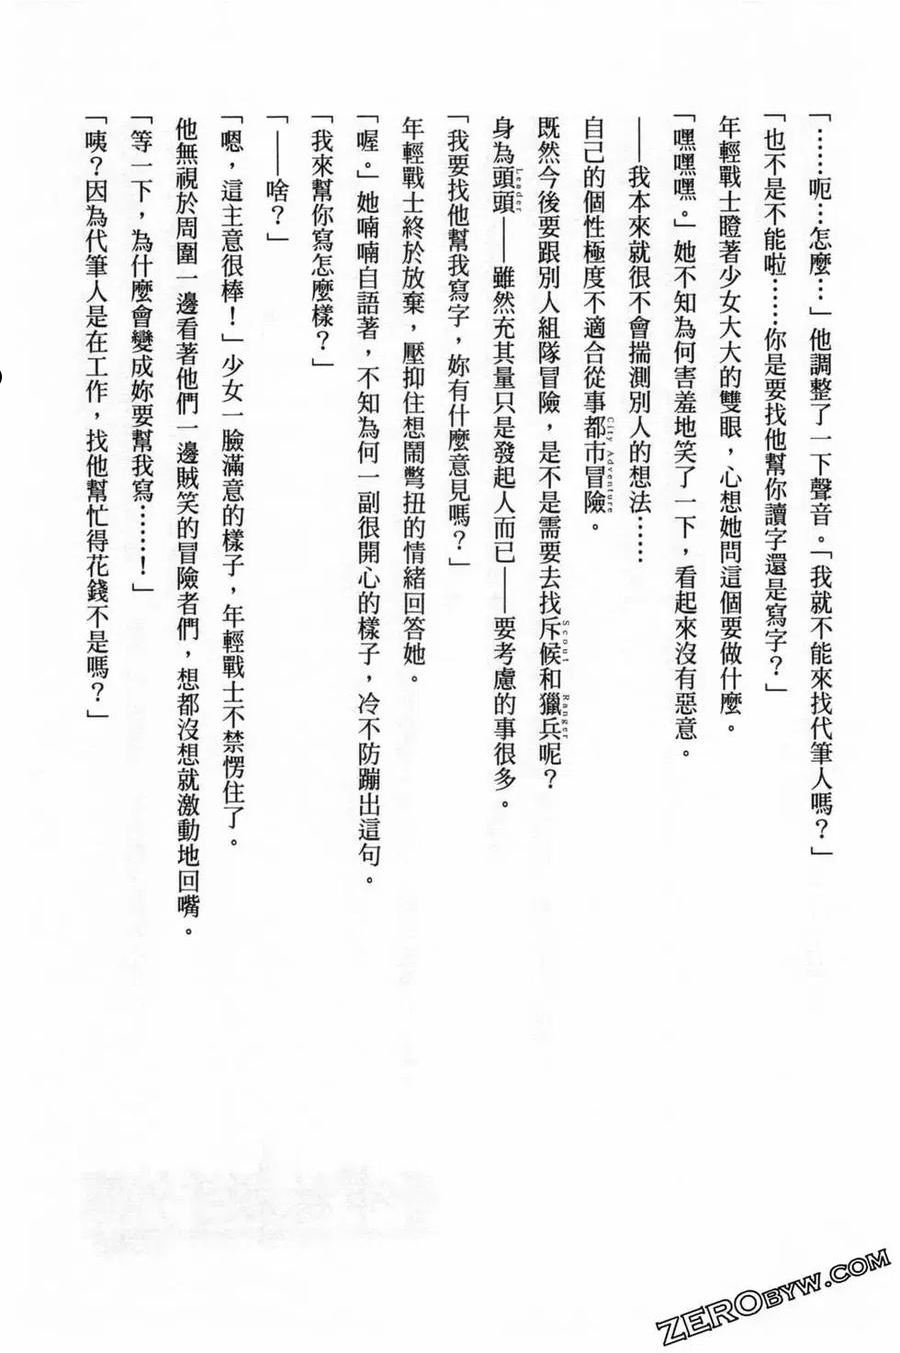 「……呃…怎麼…」他調整了一下聲音。「我就不能來找代筆人嗎？」
「也不是不能啦……你是要找他幫你讀字還是寫字？」
年輕戰士瞪著少女大大的雙眼，心想她問這個要做什麼。
「嘿嘿嘿。」她不知為何害羞地笑了一下，看起來沒有惡意。
——我本來就很不會揣測別人的想法……
自己的個性極度不適合從事都市冒險。
City Adventure
既然今後要跟別人組隊冒險，是不是需要去找斥候和獵兵呢？
Scout
Ranger
身為頭頭——雖然充其量只是發起人而已——要考慮的事很多。
Leader
「我要找他幫我寫字，妳有什麼意見嗎？」
年輕戰士終於放棄，壓抑住想鬧彆扭的情緒回答她。
「喔。」她喃喃自語著，不知為何一副很開心的樣子，冷不防蹦出這句。
「我來幫你寫怎麼樣？」
「——啥？」
「嗯，這主意很棒！」少女一臉滿意的樣子，年輕戰士不禁愣住了。
他無視於周圍一邊看著他們一邊賊笑的冒險者們，想都沒想就激動地回嘴。
「等一下，為什麼會變成妳要幫我寫……！」
「咦？因為代筆人是在工作，找他幫忙得花錢不是嗎？」
ZEROBYW.COM